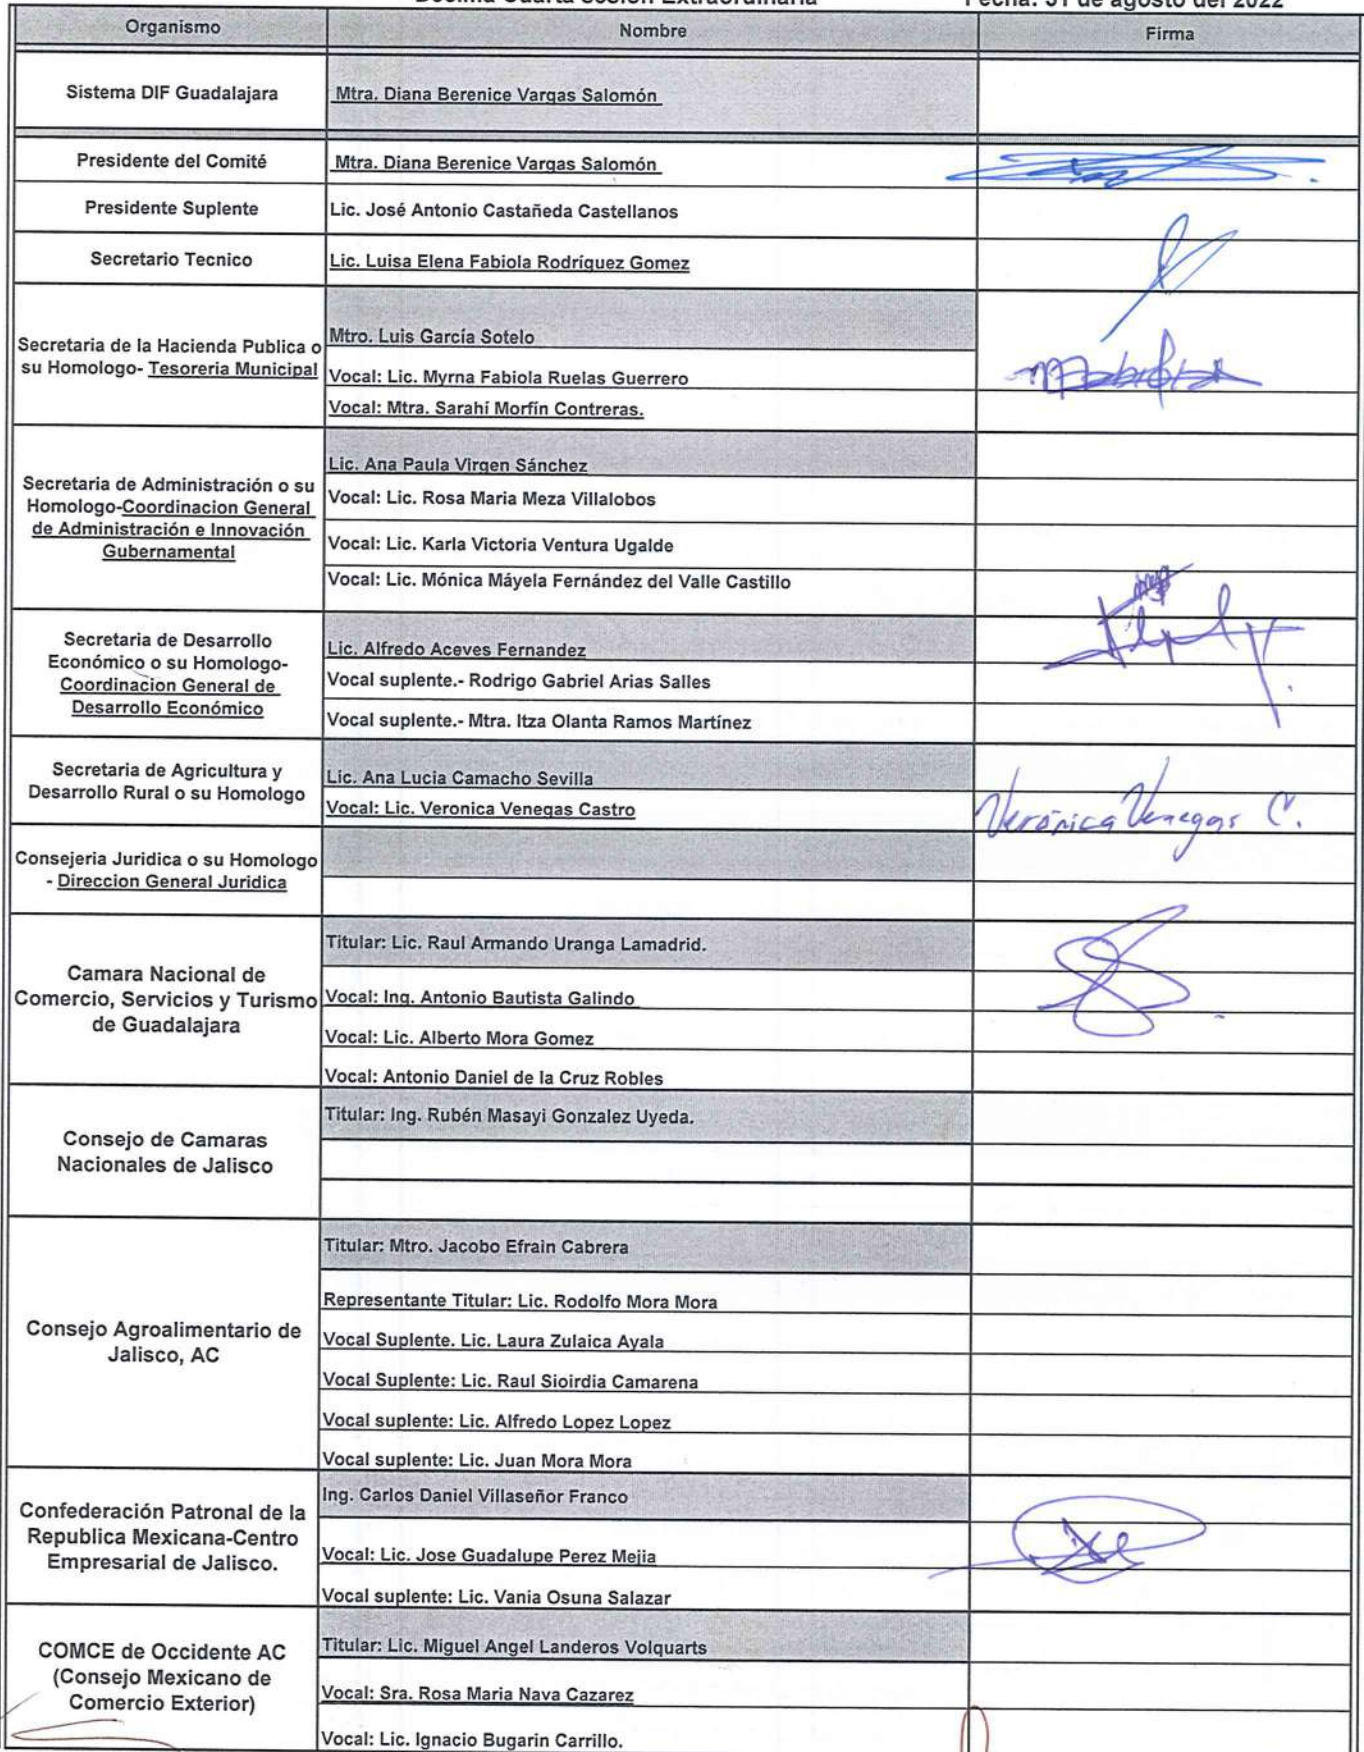 Décima Cuarta sesión Extraordinaria Fecha: 31 de agosto del 2022
Organismo Nombre Firma
Sistema DIF Guadalajara Mtra. Diana Berenice Vargas Salomón
Presidente del Comité Mtra. Diana Berenice Vargas Salomón
Presidente Suplente Lic. José Antonio Castañeda Castellanos
Secretario Tecnico Lic. Luisa Elena Fabiola Rodríguez Gomez
Secretaria de la Hacienda Publica o
su Homologo- Tesoreria Municipal
Mtro. Luis García Sotelo
Vocal: Lic. Myrna Fabiola Ruelas Guerrero
Vocal: Mtra. Sarahí Morfín Contreras.
Secretaria de Administración o su
Homologo-Coordinacion General
de Administración e Innovación
Gubernamental
Lic. Ana Paula Virgen Sánchez
Vocal: Lic. Rosa Maria Meza Villalobos
Vocal: Lic. Karla Victoria Ventura Ugalde
Vocal: Lic. Mónica Máyela Fernández del Valle Castillo
Secretaria de Desarrollo
Económico o su Homologo-
Coordinacion General de
Desarrollo Económico
Lic. Alfredo Aceves Fernandez
Vocal suplente.- Rodrigo Gabriel Arias Salles
Vocal suplente.- Mtra. Itza Olanta Ramos Martínez
Secretaria de Agricultura y
Desarrollo Rural o su Homologo
Lic. Ana Lucia Camacho Sevilla
Vocal: Lic. Veronica Venegas Castro
Verónica Venegas C.
Consejeria Juridica o su Homologo
- Direccion General Juridica
Camara Nacional de
Comercio, Servicios y Turismo
de Guadalajara
Titular: Lic. Raul Armando Uranga Lamadrid.
Vocal: Ing. Antonio Bautista Galindo
Vocal: Lic. Alberto Mora Gomez
Vocal: Antonio Daniel de la Cruz Robles
Consejo de Camaras
Nacionales de Jalisco
Titular: Ing. Rubén Masayi Gonzalez Uyeda.
Consejo Agroalimentario de
Jalisco, AC
Titular: Mtro. Jacobo Efrain Cabrera
Representante Titular: Lic. Rodolfo Mora Mora
Vocal Suplente. Lic. Laura Zulaica Ayala
Vocal Suplente: Lic. Raul Sioirdia Camarena
Vocal suplente: Lic. Alfredo Lopez Lopez
Vocal suplente: Lic. Juan Mora Mora
Confederación Patronal de la
Republica Mexicana-Centro
Empresarial de Jalisco.
Ing. Carlos Daniel Villaseñor Franco
Vocal: Lic. Jose Guadalupe Perez Mejia
Vocal suplente: Lic. Vania Osuna Salazar
COMCE de Occidente AC
(Consejo Mexicano de
Comercio Exterior)
Titular: Lic. Miguel Angel Landeros Volquarts
Vocal: Sra. Rosa Maria Nava Cazarez
Vocal: Lic. Ignacio Bugarin Carrillo.